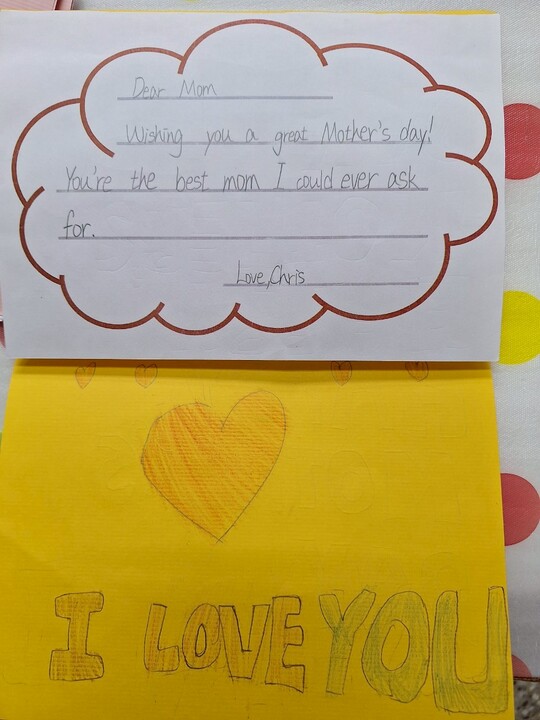 Dear Mom
Wishing you a great Mother's day!
You're the best mom I could ever ask
for.
Love, Chris
I LOVE YOU